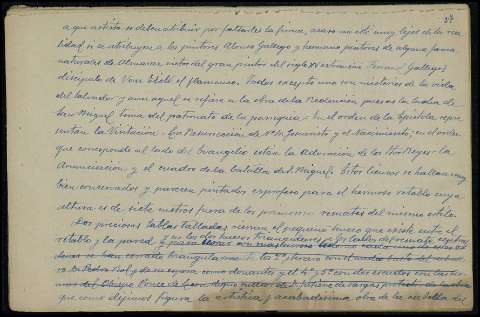 27
a que artista se deben atribuir por faltarles la firma, acaso no esté muy lejos de la rea-
lidad, si se atribuyen a los pintores Alonso Gallego y hermano pintores de alguna fama
naturales de Almaraz nietos del gran pintor del siglo XV extremeño Fernando Gallegos
discípulo de Van Eick el flamenco. Todos excepto uno son misterios de la vida
del Salvador y aun aquel se refiere a la obra de la Redención, pues es la lucha de
San Miguel tema del patronato de la parroquia. En el orden de la Epístola repre-
sentan la Visitación - La Resurrección de N. S. Jesucristo y el Nacimiento; en el orden
que corresponde al lado del Evangelio están la Adoración de los Stos Reyes - La
Anunciación y el cuadro de la batalla de S. Miguel. Estos lienzos se hallan muy
bien conservados y parecen pintados exprofeso para el hermoso retablo cuya
altura es de siete metros fuera de los primorosos remates del mismo estilo.
Dos preciosas tablas talladas cierran el pequeño hueco que existe entre el
retablo y la pared y en los dos huecos triangulares
triangular
San Pedro donantes, y el 4º y 5º con dos escudos
Obispo Ponce de León
que como dijimos figura la artística y acabadísima obra de los retablos del